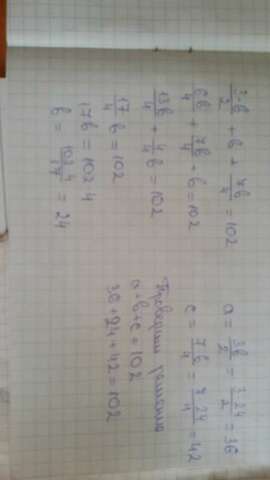 3·b/2 + b + 7b/4 = 102
6b/4 + 7b/4 + b = 102
13b/4 + 4/4 b = 102
17/4 b = 102
17b = 102·4
b = 102·4/17 = 24
a = 3b/2 = 3·24/2 = 36
c = 7b/4 = 7·24/4 = 42
Проверим решение
a+b+c = 102
36+24+42 = 102